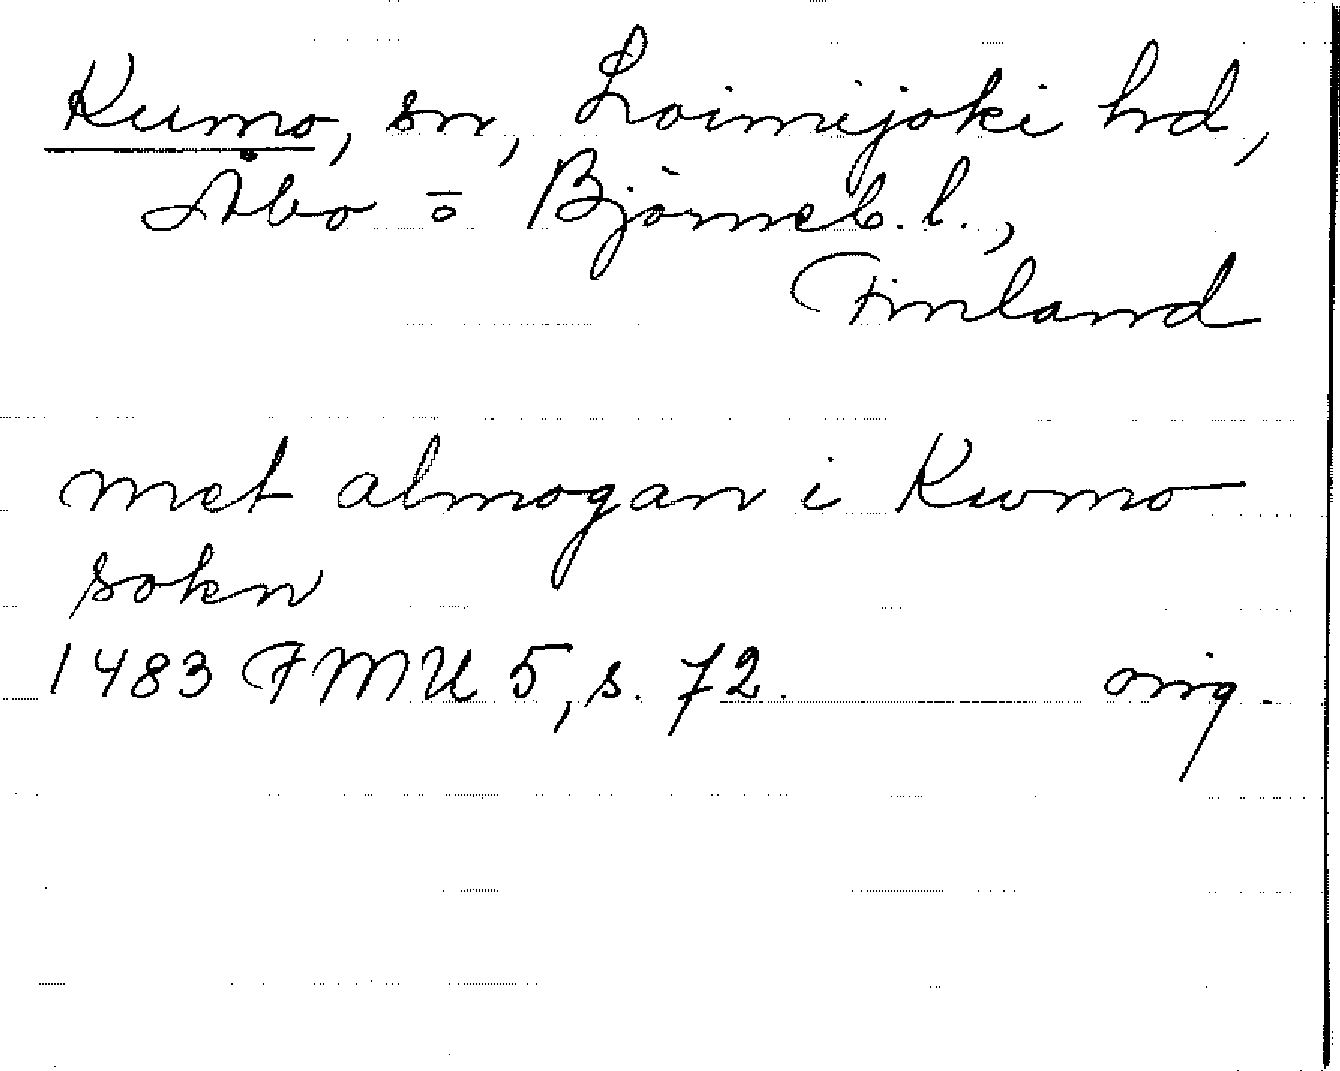 Kumo, sn, Loimijoki hd,
Åbo o Björneb. l.,
Finland
met almogan i Kwmo
sokn
1483 FMU 5, s. 72. orig.